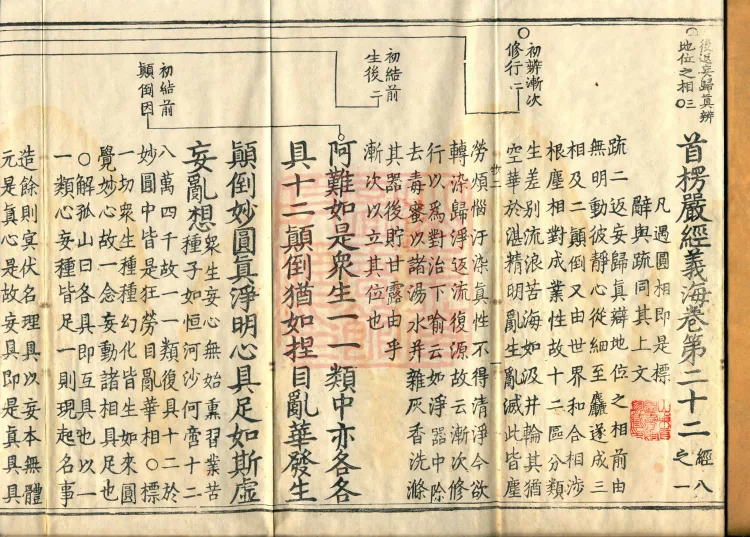 後返妄歸真辨
地位之相三
初辨漸次
修行二
初結前
生後二
初結前
顛倒因
首楞嚴經義海卷第二十二 經八之一
凡遇圓相即是標
辭與疏同其上文
疏二返妄歸真辯地位之相前由
無明動彼靜心從細至麤遂成三
相及二顛倒又由世界和合相涉
根塵相對成業性故十二區分類
生差別流浪苦海如汲井輪其猶
空華於湛精明亂生亂滅此皆塵
勞煩惱汙染真性不得清淨今欲
轉染歸淨返流復源故云漸次修
行以爲對治下喻云如淨器中除
去毒蜜以諸湯水并雜灰香洗滌
其器後貯甘露由乎
漸次以立其位也
阿難如是衆生一一類中亦各各
具十二顛倒猶如捏目亂華發生
顛倒妙圓真淨明心具足如斯虛
妄亂想 衆生妄心無始熏習業苦
種子如恒河沙何啻十二
八萬四千故一一類復具十二於
妙圓中皆是狂勞目亂華相○標
一切衆生種種幻化皆生如來圓
覺妙心故一念妄動諸相具足也
○解孤山曰各具即互具也以一
一類心妄種皆足一則現起名事
造餘則冥伏名理具以妄本無體
元是真心是故妄具即是真具具